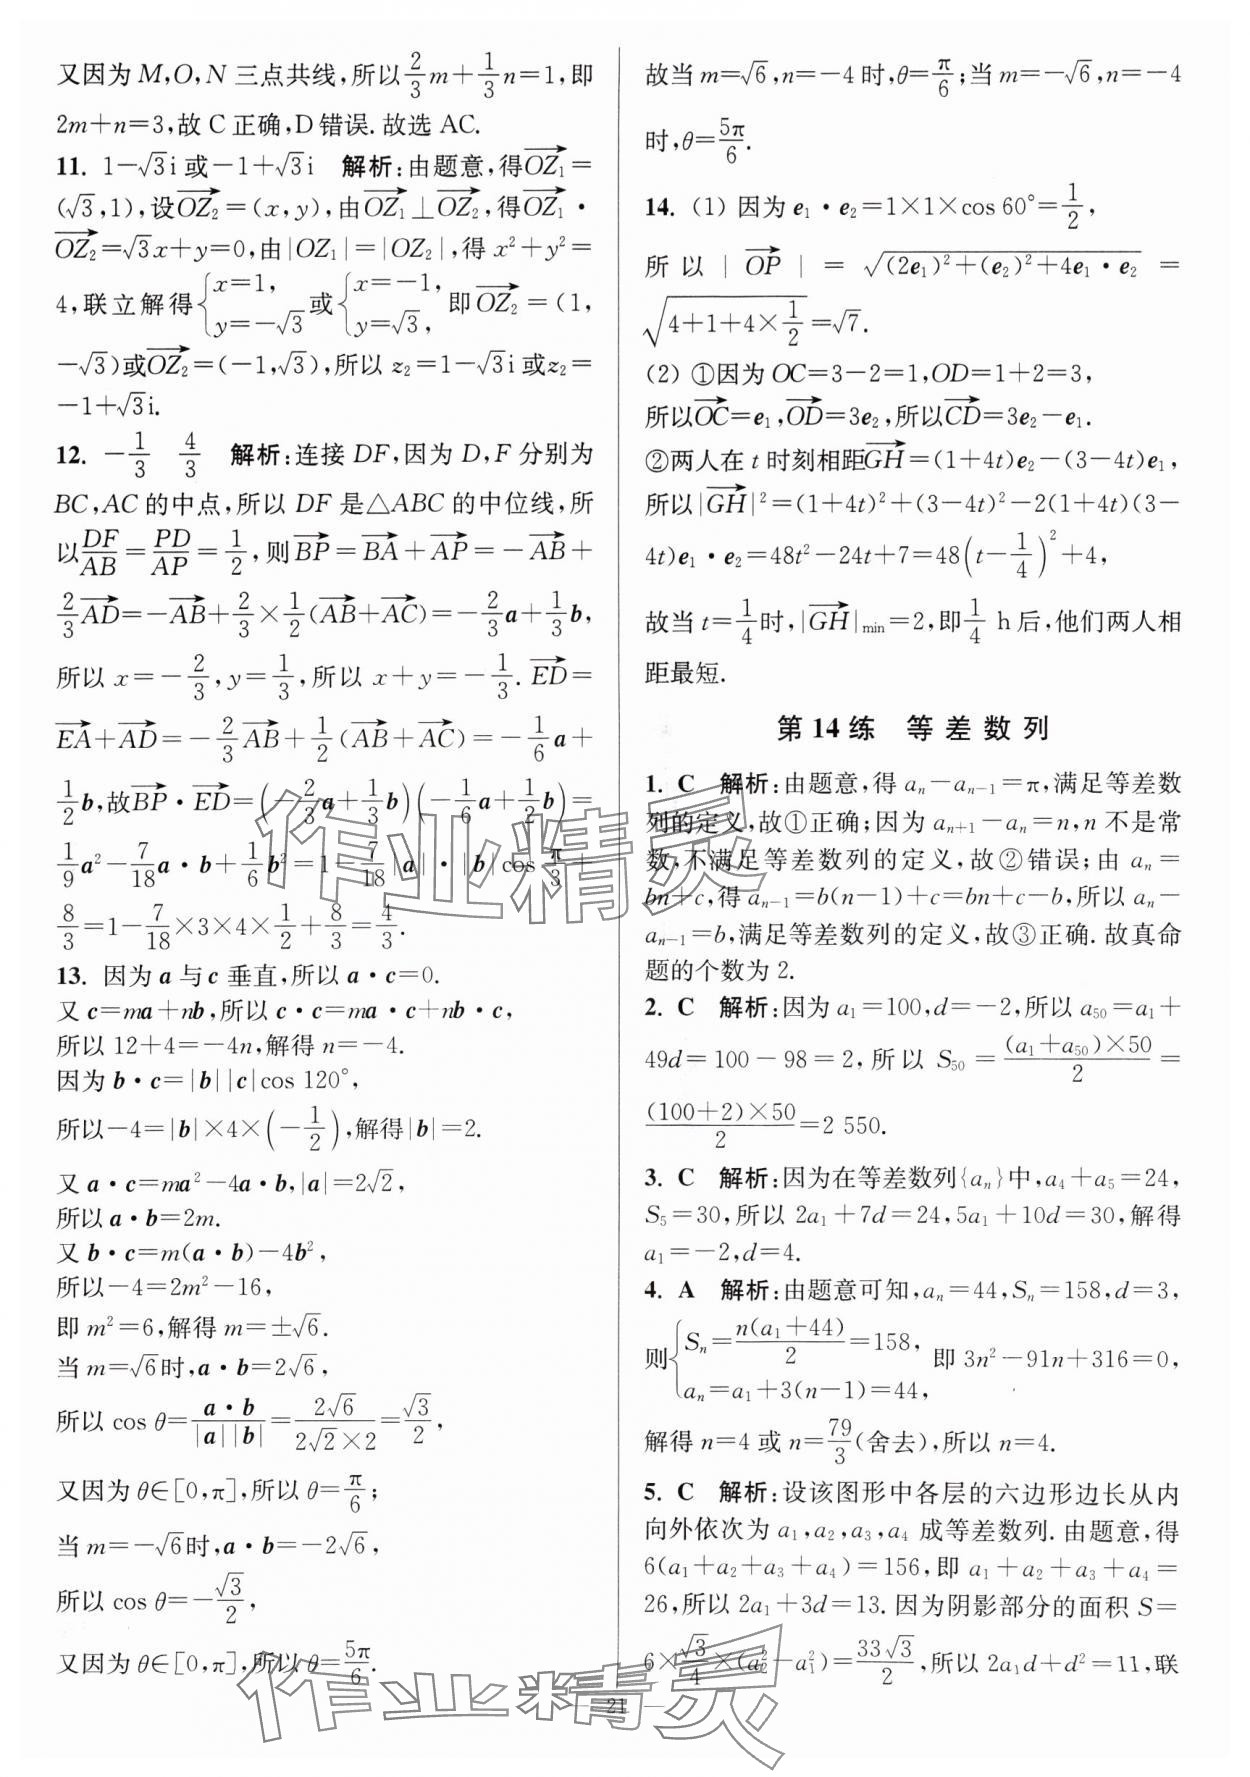 又因为 M,O,N 三点共线,所以$\frac{2}{3}$m+$\frac{1}{3}$n=1,即
2m+n=3,故 C 正确,D 错误. 故选 AC.
11. 1-√3i 或-1+√3i 解析:由题意,得$\overrightarrow{OZ_1}$=
(√3,1),设$\overrightarrow{OZ_2}$=(x,y),由$\overrightarrow{OZ_1}$⊥$\overrightarrow{OZ_2}$,得$\overrightarrow{OZ_1}$·
$\overrightarrow{OZ_2}$=√3x+y=0,由|OZ₁|=|OZ₂|,得 x²+y²=
4,联立解得$\begin{cases}x=1,\\y=-\sqrt{3}\end{cases}$或$\begin{cases}x=-1,\\y=\sqrt{3},\end{cases}$即$\overrightarrow{OZ_2}$=(1,
-√3)或$\overrightarrow{OZ_2}$=(-1,√3),所以 z₂=1-√3i 或z₂=
-1+√3i.
12. -$\frac{1}{3}$ $\frac{4}{3}$ 解析:连接 DF,因为 D,F 分别为
BC,AC 的中点,所以 DF 是△ABC 的中位线,所
以$\frac{DF}{AB}$=$\frac{PD}{AP}$=$\frac{1}{2}$,则$\overrightarrow{BP}$=$\overrightarrow{BA}$+$\overrightarrow{AP}$=-$\overrightarrow{AB}$+
$\frac{2}{3}\overrightarrow{AD}$=-$\overrightarrow{AB}$+$\frac{2}{3}$×$\frac{1}{2}$($\overrightarrow{AB}$+$\overrightarrow{AC}$)=-$\frac{2}{3}$a+$\frac{1}{3}$b,
所以 x=-$\frac{2}{3}$,y=$\frac{1}{3}$,所以 x+y=-$\frac{1}{3}$. $\overrightarrow{ED}$=
$\overrightarrow{EA}$+$\overrightarrow{AD}$=-$\frac{2}{3}\overrightarrow{AB}$+$\frac{1}{2}$($\overrightarrow{AB}$+$\overrightarrow{AC}$)=-$\frac{1}{6}$a+
$\frac{1}{2}$b,故$\overrightarrow{BP}$·$\overrightarrow{ED}$=(-$\frac{2}{3}$a+$\frac{1}{3}$b)(-$\frac{1}{6}$a+$\frac{1}{2}$b)=
$\frac{1}{9}$a²-$\frac{7}{18}$a·b+$\frac{1}{6}$b²=1-$\frac{7}{18}$|a|·|b|cos$\frac{π}{3}$+
$\frac{8}{3}$=1-$\frac{7}{18}$×3×4×$\frac{1}{2}$+$\frac{8}{3}$=$\frac{4}{3}$.
13. 因为 a 与 c 垂直,所以 a·c=0.
又 c=ma+nb,所以 c·c=ma·c+nb·c,
所以 12+4=-4n,解得 n=-4.
因为 b·c=|b||c|cos 120°,
所以-4=|b|×4×(-$\frac{1}{2}$),解得|b|=2.
又 a·c=ma²-4a·b,|a|=2√2,
所以 a·b=2m.
又 b·c=m(a·b)-4b²,
所以-4=2m²-16,
即 m²=6,解得 m=±√6.
当 m=√6时,a·b=2√6,
所以 cos θ=$\frac{a·b}{|a||b|}$=$\frac{2\sqrt{6}}{2\sqrt{2}×2}$=$\frac{\sqrt{3}}{2}$,
又因为 θ∈[0,π],所以 θ=$\frac{π}{6}$;
当 m=-√6时,a·b=-2√6,
所以 cos θ=-$\frac{\sqrt{3}}{2}$,
又因为 θ∈[0,π],所以 θ=$\frac{5π}{6}$.
故当 m=√6,n=-4 时,θ=$\frac{π}{6}$;当 m=-√6,n=-4
时,θ=$\frac{5π}{6}$.
14. (1) 因为 e₁·e₂=1×1×cos 60°=$\frac{1}{2}$,
所以|$\overrightarrow{OP}$|=$\sqrt{(2e_1)^2+(e_2)^2+4e_1·e_2}$=
$\sqrt{4+1+4×\frac{1}{2}}$=√7.
(2) ①因为 OC=3-2=1,OD=1+2=3,
所以$\overrightarrow{OC}$=e₁,$\overrightarrow{OD}$=3e₂,所以$\overrightarrow{CD}$=3e₂-e₁.
②两人在 t 时刻相距$\overrightarrow{GH}$=(1+4t)e₂-(3-4t)e₁,
所以|$\overrightarrow{GH}$|²=(1+4t)²+(3-4t)²-2(1+4t)(3-
4t)e₁·e₂=48t²-24t+7=48(t-$\frac{1}{4}$)²+4,
故当 t=$\frac{1}{4}$时,|$\overrightarrow{GH}$|$_{min}$=2,即$\frac{1}{4}$ h 后,他们两人相
距最短.
第 14 练 等差数列
1. C 解析:由题意,得 aₙ-aₙ₋₁=π,满足等差数
列的定义,故①正确;因为 aₙ₊₁-aₙ=n,n 不是常
数,不满足等差数列的定义,故②错误;由 aₙ=
bn+c,得 aₙ₋₁=b(n-1)+c=bn+c-b,所以 aₙ-
aₙ₋₁=b,满足等差数列的定义,故③正确. 故真命
题的个数为 2.
2. C 解析:因为 a₁=100,d=-2,所以 a₅₀=a₁+
49d=100-98=2,所以 S₅₀=$\frac{(a_1+a_{50})×50}{2}$=
$\frac{(100+2)×50}{2}$=2 550.
3. C 解析:因为在等差数列{aₙ}中,a₄+a₅=24,
S₅=30,所以 2a₁+7d=24,5a₁+10d=30,解得
a₁=-2,d=4.
4. A 解析:由题意可知,aₙ=44,Sₙ=158,d=3,
则$\begin{cases}S_n=\frac{n(a_1+44)}{2}=158,\\a_n=a_1+3(n-1)=44,\end{cases}$即 3n²-91n+316=0,
解得 n=4 或 n=$\frac{79}{3}$(舍去),所以 n=4.
5. C 解析:设该图形中各层的六边形边长从内
向外依次为 a₁,a₂,a₃,a₄ 成等差数列. 由题意,得
6(a₁+a₂+a₃+a₄)=156,即 a₁+a₂+a₃+a₄=
26,所以 2a₁+3d=13. 因为阴影部分的面积 S=
6×$\frac{\sqrt{3}}{4}$×(a₂²-a₁²)=$\frac{33\sqrt{3}}{2}$,所以 2a₁d+d²=11,联
— 21 —
作业精灵
作业精灵